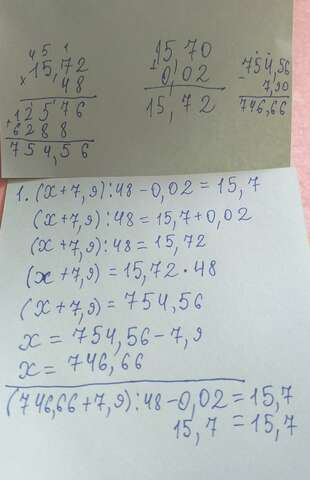 4 5 1
15,72
× 48
12576
+ 6288
754,56
15,70
+ 0,02
15,72
754,56
- 7,90
746,66
1. (x+7,9):48-0,02=15,7
(x+7,9):48=15,7+0,02
(x+7,9):48=15,72
(x+7,9)=15,72·48
(x+7,9)=754,56
x=754,56-7,9
x=746,66
(746,66+7,9):48-0,02=15,7
15,7=15,7